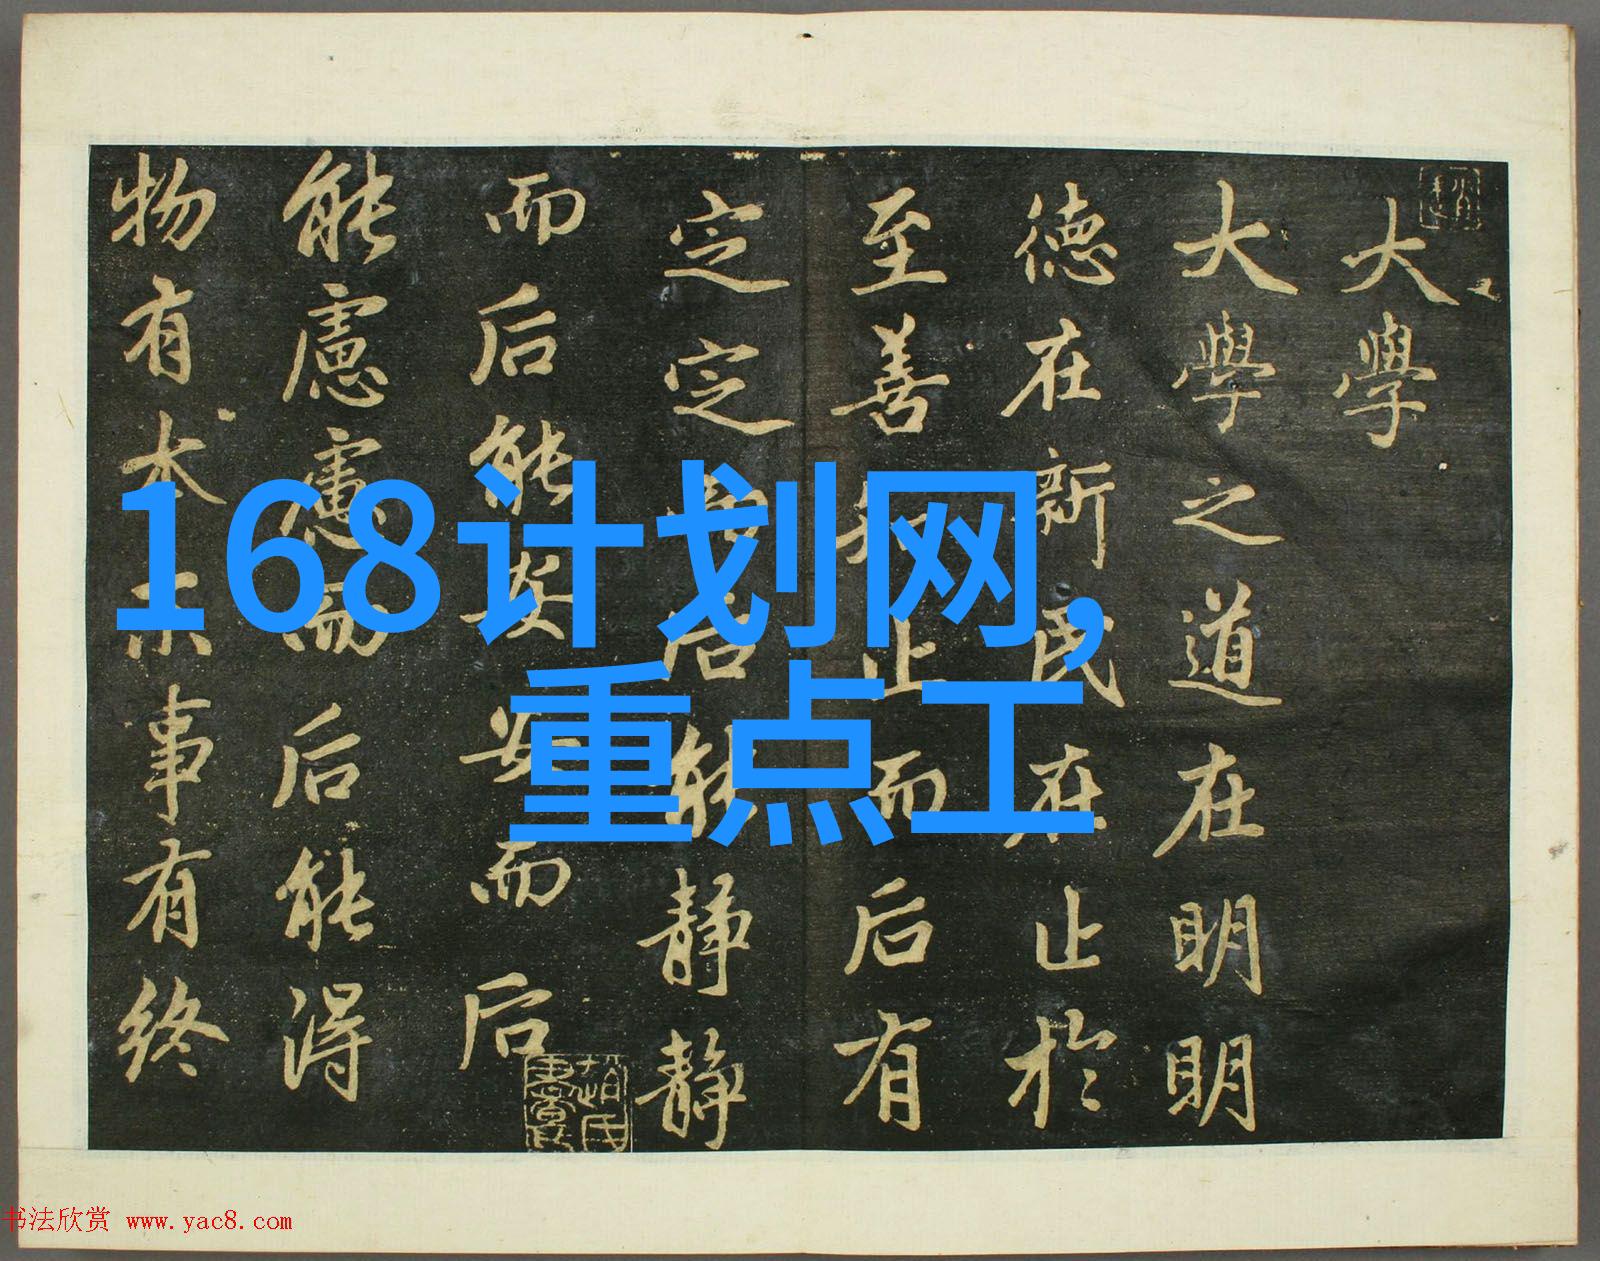 大學
大學之道在明明
德在新民在止於
至善知止而后有
定定而后能静静
而后能安安而后
能慮慮而后能得
物有本末事有終
168计划网,
重点工
书法欣赏 www.yac8.com